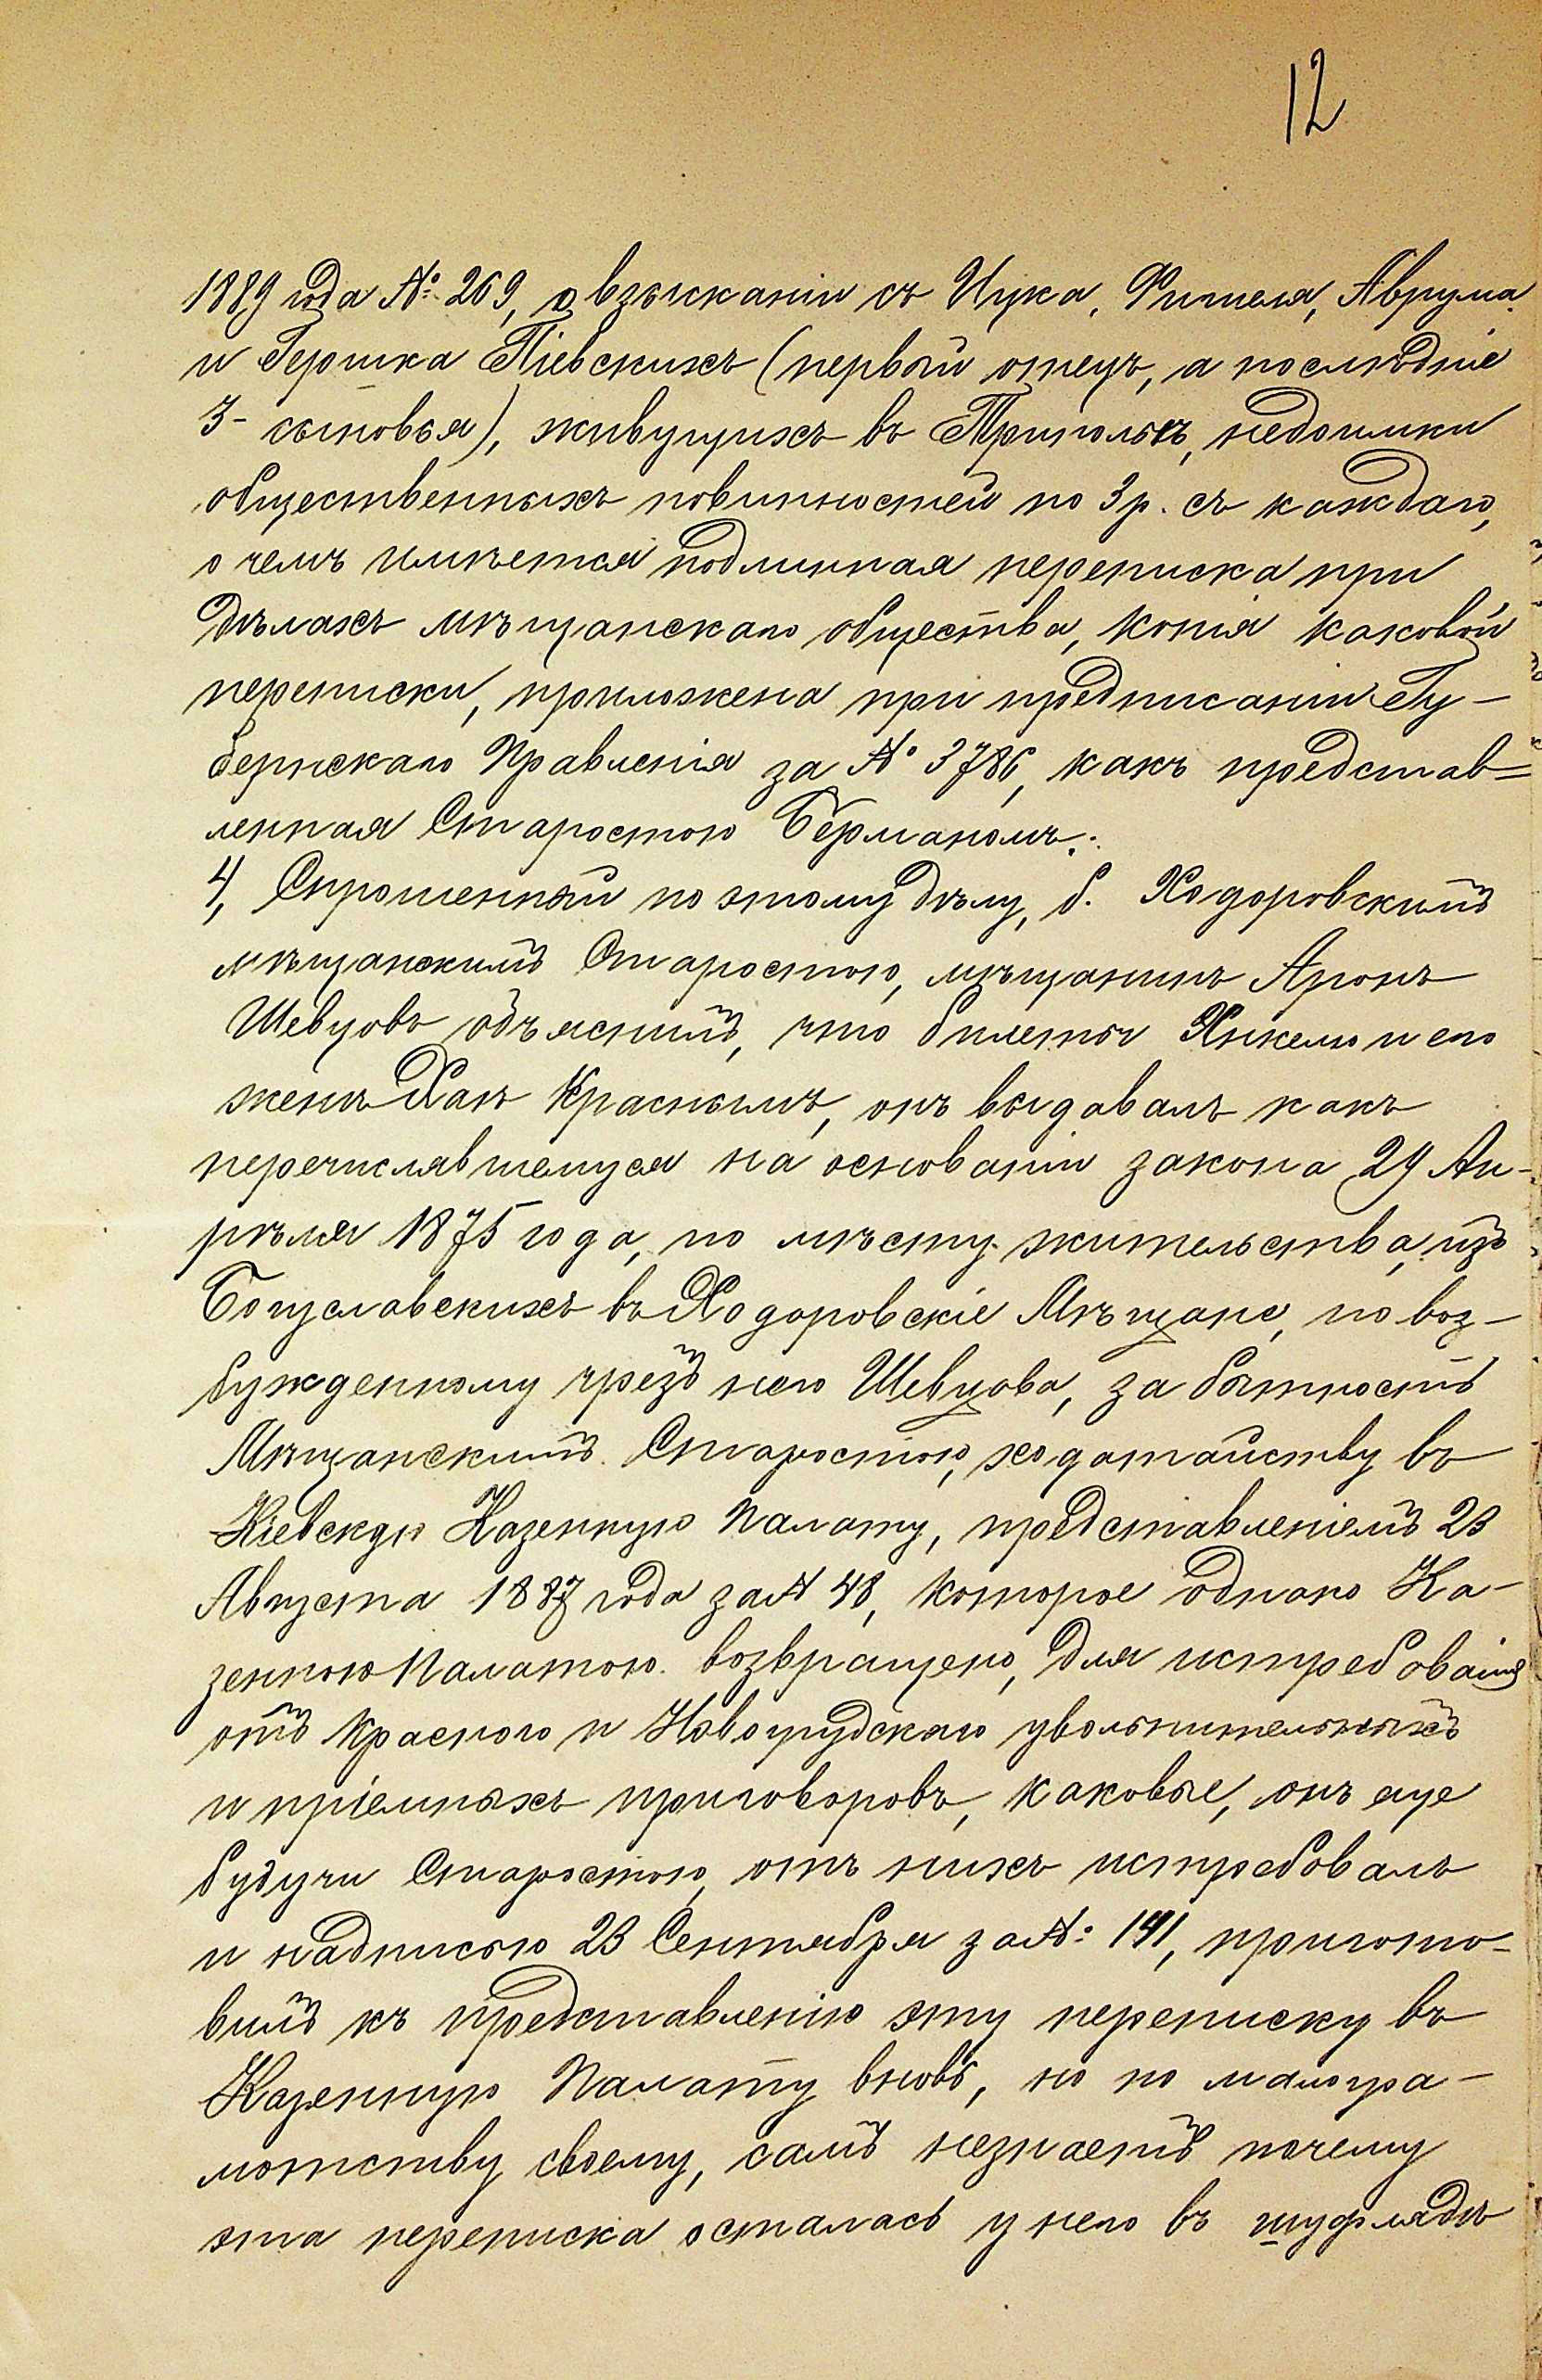 12
1889 года № 269, о взысканіи съ Ицка, Фишеля, Аврума
и Гершка Кіевскихъ (первый отецъ, а послѣдніе
3- сыновья), живущихъ въ Трипольѣ, недоимки
общественныхъ повинностей по 3 р. съ каждаго,
о чемъ имѣется подлинная переписка при
дѣлахъ мѣщанскаго общества, копія каковой
переписки, приложена при предписаніи Гу-
бернскаго Правленія за № 3786, какъ представ=
ленная Старостою Берманомъ.
4, Спрошенный по этому дѣлу, б. Ходоровскимъ
мѣщанскимъ Старостою, мѣщанинъ Аронъ
Шевцовъ объяснилъ, что билеты Хикелю и его
женѣ Хаѣ Краснымъ, онъ выдавалъ какъ
перечислявшемуся на основаніи закона 29 Ап-
рѣля 1875 года, по мѣсту жительства, изъ
Богуславскихъ въ Ходоровскіе Мѣщане, по воз-
бужденному чрезъ него Шевцова, за бытность
Мѣщанскимъ Старостою, ходатайству въ
Кіевскую Казенную Палату, представленіемъ 23
Августа 1887 года за № 48, которое однако Ка-
зенною Палатою возвращено, для истребованія
отъ Красного и Новогрудскаго увольнительныхъ
и пріемныхъ приговоровъ, каковые, онъ еще
будучи Старостою, отъ нихъ истребовалъ
и надписью 23 Сентября за №: 141, пригото-
вилъ къ представленію эту переписку въ
Казенную Палату вновь, но по малогра-
мотству своему, самъ незнаетъ почему
эта переписка осталась у него въ шуфлядѣ